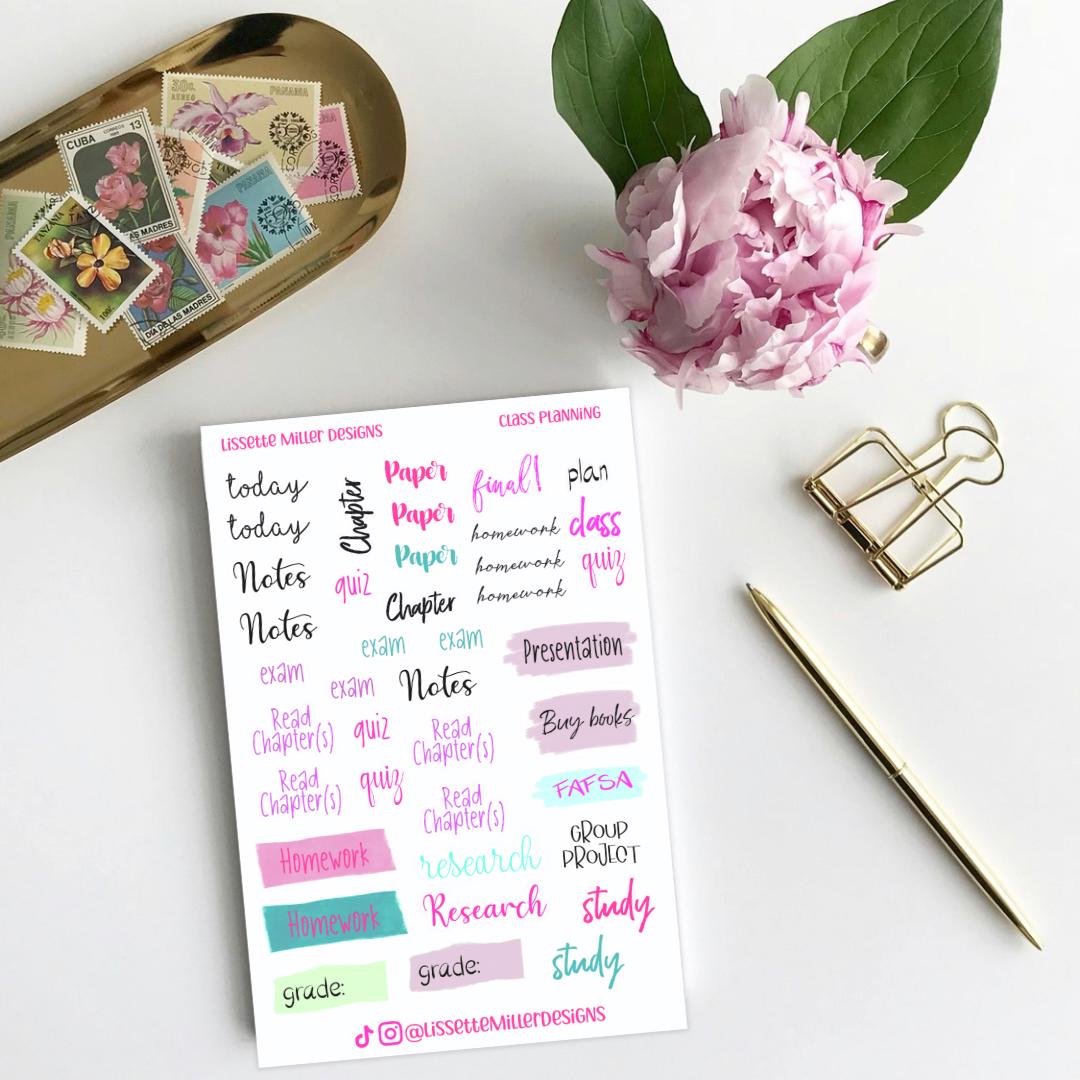 30c.
AEREO
PANAMA
CUBA
CORREOS
13
PANAMA
PANAMA
TANZANIA
100/-
AS MADRES
DIA DE LAS MADRES
LISSETTE MILLER DESIGNS
CLASS PLANNING
today
Chapter
Paper
final!
plan
today
Paper
homework
class
Notes
quiz
Paper
homework
quiz
Notes
Chapter
homework
exam
exam
exam
Presentation
exam
Notes
Read
Chapter(s)
quiz
Read
Chapter(s)
Buy books
Read
Chapter(s)
quiz
Read
Chapter(s)
FAFSA
Homework
research
GROUP
PROJECT
Homework
Research
study
grade:
grade:
study
@LISSETTEMILLERDESIGNS